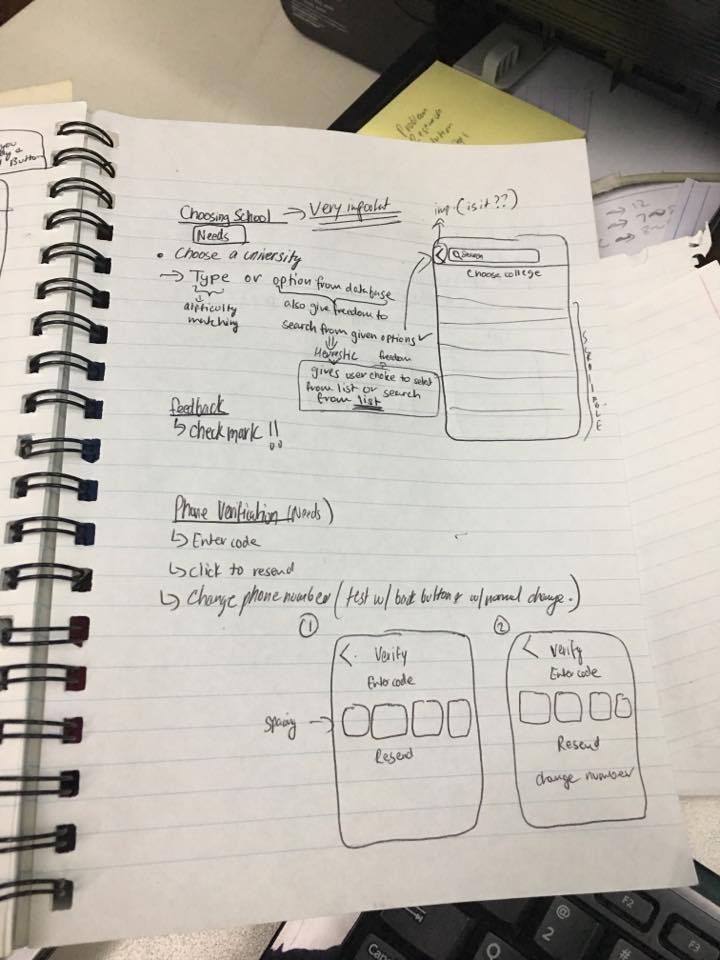 Choosing School → Very important
Needs
• Choose a university
→ Type or option from database
difficulty
matching
also give freedom to
search from given options ✓
Heurestic freedom
gives user choice to select
from list or search
from list
imp. (is it??)
< Search
Choose college
SCROLLABLE
feedback
↳ checkmark !!
Phone Verification (Needs)
↳ Enter code
↳ click to resend
↳ Change phone number (test w/ back button & w/ normal change.)
①
< Verify
Enter code
spacing →
Resend
②
< Verify
Enter code
Resend
change number
Problem
Research
you
Button
12
7
@
2
Q
F2